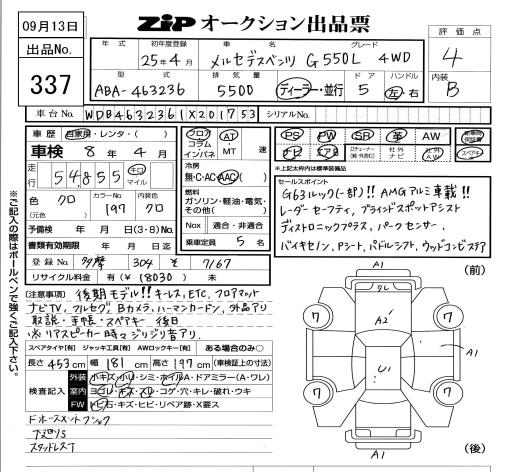 09月13日
ZiP オークション出品票
出品No.
337
年式 初年度登録 車名 グレード
25年4月 メルセデスベンツ G550L 4WD
型式 排気量 ドア ハンドル
ABA-463236 5500 ディーラー・並行 5 左・右
評価点
4
内装
B
車台No. WDB4632361X201753 シリアルNo.
車歴 自家用・レンタ・( )
車検 8年4月
走行 54,855 キロ マイル
色 クロ カラーNo. 197 内装色 クロ
(元色)
予備検 年 月 日(3・8)No.
書類有効期限 年 月 日迄
登録No. 多摩 304 そ 7167
リサイクル料金 有(¥18030) 未
フロア コラム インパネ AT MT 速
冷房
無・C・AC・AAC
燃料
ガソリン・軽油・電気・その他( )
Nox 適合・非適合
乗車定員 5名
PS PW SR 革 AW
ナビ エアB 社外ナビ 社外AW スペアキー
※上記太枠内は標準装備品
セールスポイント
G63ルック(一部)!! AMGアルミ車載!!
レーダーセーフティ、ブラインドスポットアシスト
ディストロニックプラス、パークセンサー.
バイキセノン、Pシート、パドルシフト、ウッドコンビステア
[注意事項] 後期モデル!! キーレス、ETC、フロアマット
ナビTV、フルセグ、Bカメラ、ハーマンカードン、外品アリ
取説・手帳・スペアキー 後日
※リアスピーカー時々ジリジリ音アリ.
スペアタイヤ(有) ジャッキ工具(有) AWロックキー(有) ある場合のみ○
長さ 453cm 幅 181cm 高さ 197cm (車検証上の寸法)
検査記入
外装 小キズ・小U・シミ・ホイルA・ドアミラー(A・ワレ)
内装 ヨゴレ・キズ・スレ・コゲ・穴・キレ・破れ・ウキ
FW トビ石・キズ・ヒビ・リペア跡・X要ス
下廻りS
※ご記入の際はボールペンで強くご記入下さい。
(前)
A1
クレ
A2
7
7
U1
A1
7
7
A1
(後)